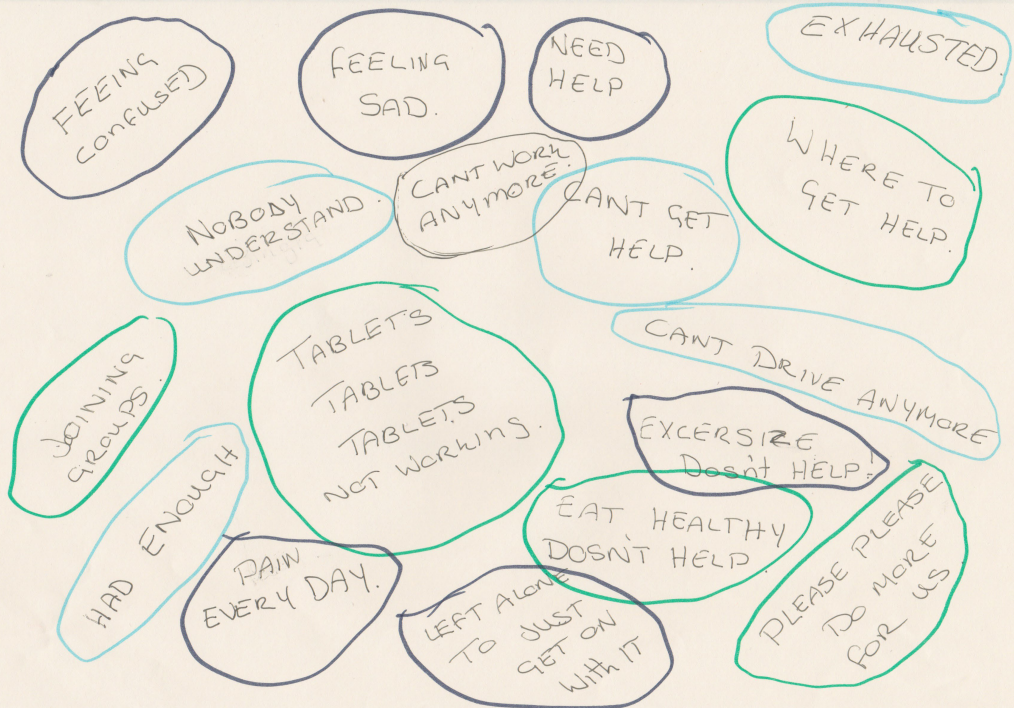 FEEING
CONFUSED
FEELING
SAD.
NEED
HELP
EXHAUSTED.
NOBODY
UNDERSTAND.
CANT WORK
ANYMORE.
CANT GET
HELP.
WHERE TO
GET HELP.
JOINING
GROUPS.
TABLETS
TABLETS
TABLETS
NOT WORKING.
CANT DRIVE ANYMORE
EXCERSIZE
Dosn't HELP!
HAD ENOUGH
PAIN
EVERY DAY.
EAT HEALTHY
DOSN'T HELP.
LEFT ALONE
TO JUST
GET ON
With IT
PLEASE PLEASE
DO MORE
FOR US